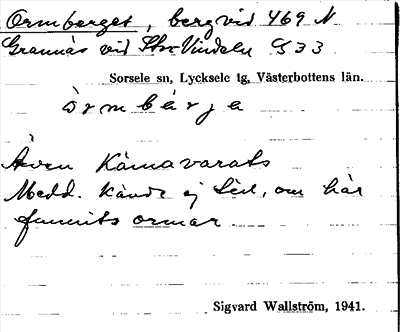 Ormberget, berg vid 469 N
Grannäs vid Stor Vindeln G33
Sorsele sn, Lycksele tg, Västerbottens län.
òrmbärja
Även Kärnavarats
Medd. kände ej till, om här
funnits ormar.
Sigvard Wallström, 1941.